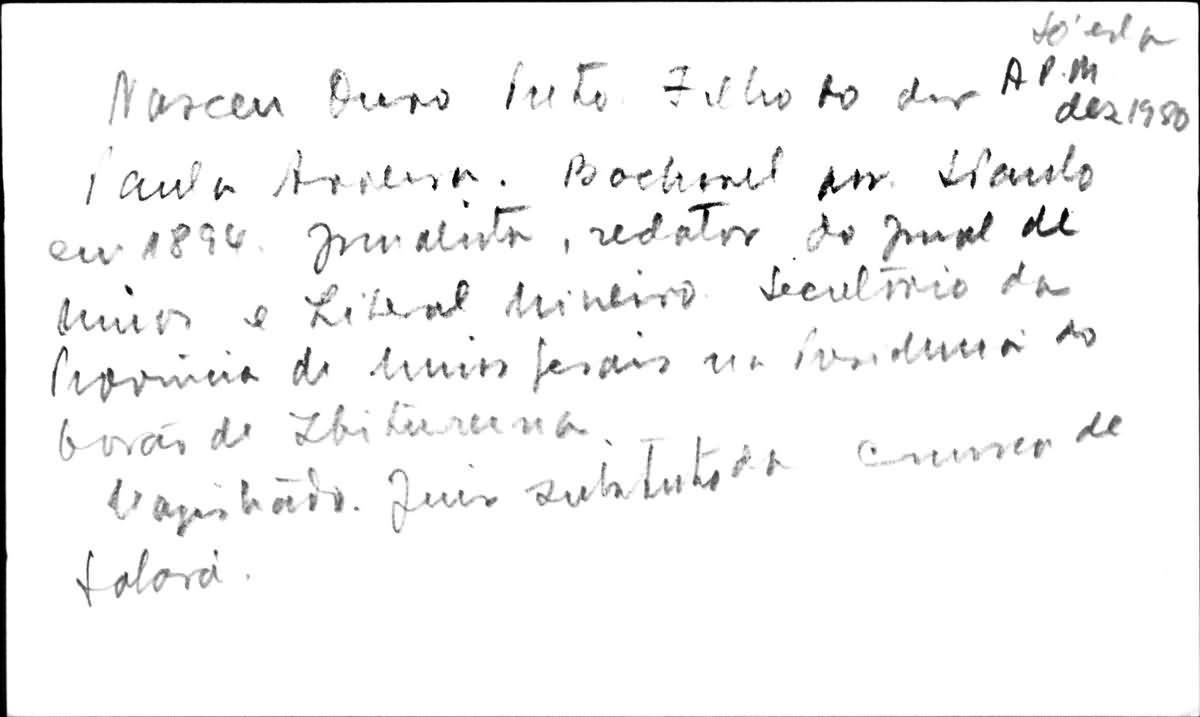 só esta
A P. M
dez 1980
Nasceu Ouro Preto. Filho do des
Paula Arreira. Bacharel por S. Paulo
em 1894. Jornalista, redator do Jornal de
Minas e Liberal Mineiro. Secretário da
Província de Minas Gerais na Presidência do
barão de Ibituruna
Magistrado. Juiz substituto da Comarca de
Sabará.